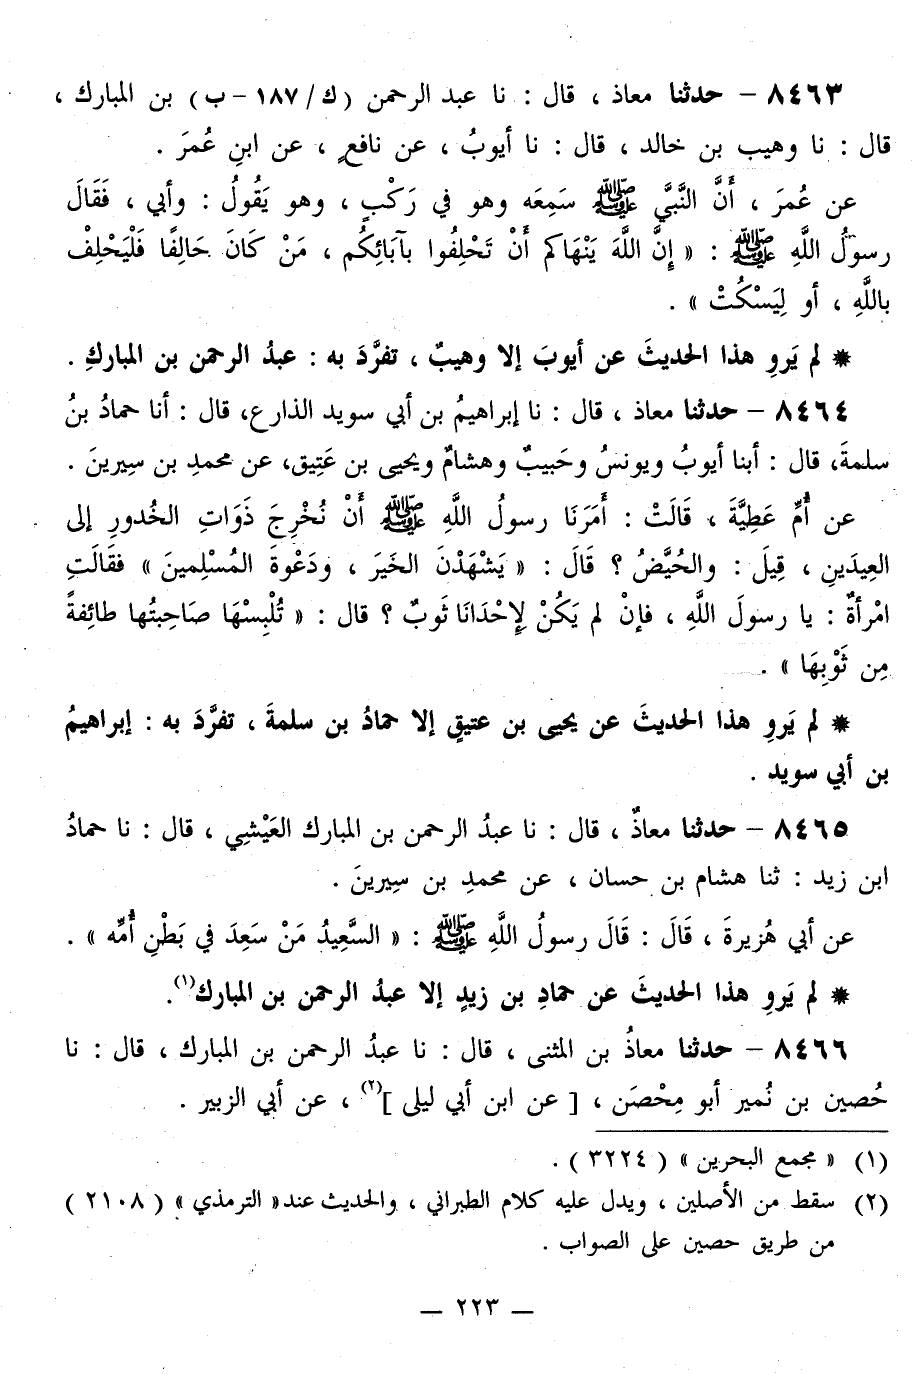 ٨٤٦٣ - حدثنا معاذ ، قال : نا عبد الرحمن (ك/١٨٧ - ب) بن المبارك ،
قال : نا وهيب بن خالد ، قال : نا أيوبُ ، عن نافعٍ ، عن ابنِ عُمرَ .
عن عُمرَ ، أَنَّ النَّبيَّ ﷺ سَمِعَه وهو في رَكْبٍ ، وهو يَقُولُ : وأبي ، فَقَالَ
رسولُ اللَّهِ ﷺ : « إِنَّ اللَّهَ يَنْهَاكم أَنْ تَحْلِفُوا بآبَائِكُم ، مَنْ كَانَ حَالِفًا فَلْيَحْلِفْ
باللَّهِ ، أو لِيَسْكُتْ » .
* لم يَروِ هذا الحديثَ عن أيوبَ إلا وهيبٌ ، تفرَّدَ به : عبدُ الرحمن بن المباركِ .
٨٤٦٤ - حدثنا معاذ ، قال : نا إبراهيمُ بن أبي سويد الذارع، قال : أنا حمادُ بنُ
سلمةَ، قال : أبنا أيوبُ ويونسُ وحَبيبٌ وهشامٌ ويحيى بن عَتِيق، عن محمدِ بن سِيرينَ .
عن أُمِّ عَطِيَّةَ ، قَالَتْ : أَمَرَنَا رسولُ اللَّهِ ﷺ أَنْ نُخْرِجَ ذَوَاتِ الخُدورِ إلى
العِيدَينِ ، قِيلَ : والحُيَّضُ ؟ قَالَ : « يَشْهَدْنَ الخَيرَ ، ودَعْوةَ المُسْلِمينَ » فقَالَتِ
امْرأةٌ : يا رسولَ اللَّهِ ، فإنْ لم يَكُنْ لِإحْدَانَا ثَوبٌ ؟ قال : « تُلْبِسْهَا صَاحِبتُها طائِفةً
مِن ثَوْبِهَا » .
* لم يَروِ هذا الحديثَ عن يحيى بن عتيقٍ إلا حمادُ بن سلمةَ ، تفرَّدَ به : إبراهيمُ
بن أبي سويد .
٨٤٦٥ - حدثنا معاذٌ ، قال : نا عبدُ الرحمن بن المبارك العَيْشِي ، قال : نا حمادُ
ابن زيد : ثنا هشام بن حسان ، عن محمدِ بن سِيرينَ .
عن أبي هُريرةَ ، قَالَ : قَالَ رسولُ اللَّهِ ﷺ : « السَّعِيدُ مَنْ سَعِدَ في بَطْنِ أُمِّه » .
* لم يَروِ هذا الحديثَ عن حمادِ بن زيدٍ إلا عبدُ الرحمن بن المبارك(١).
٨٤٦٦ - حدثنا معاذُ بن المثنى ، قال : نا عبدُ الرحمن بن المبارك ، قال : نا
حُصين بن نُمير أبو مِحْصَن ، [ عن ابن أبي ليلى ](٢) ، عن أبي الزبير .
(١) « مجمع البحرين » ( ٣٢٢٤ ) .
(٢) سقط من الأصلين ، ويدل عليه كلام الطبراني ، والحديث عند « الترمذي » ( ٢١٠٨ )
من طريق حصين على الصواب .
— ٢٢٣ —